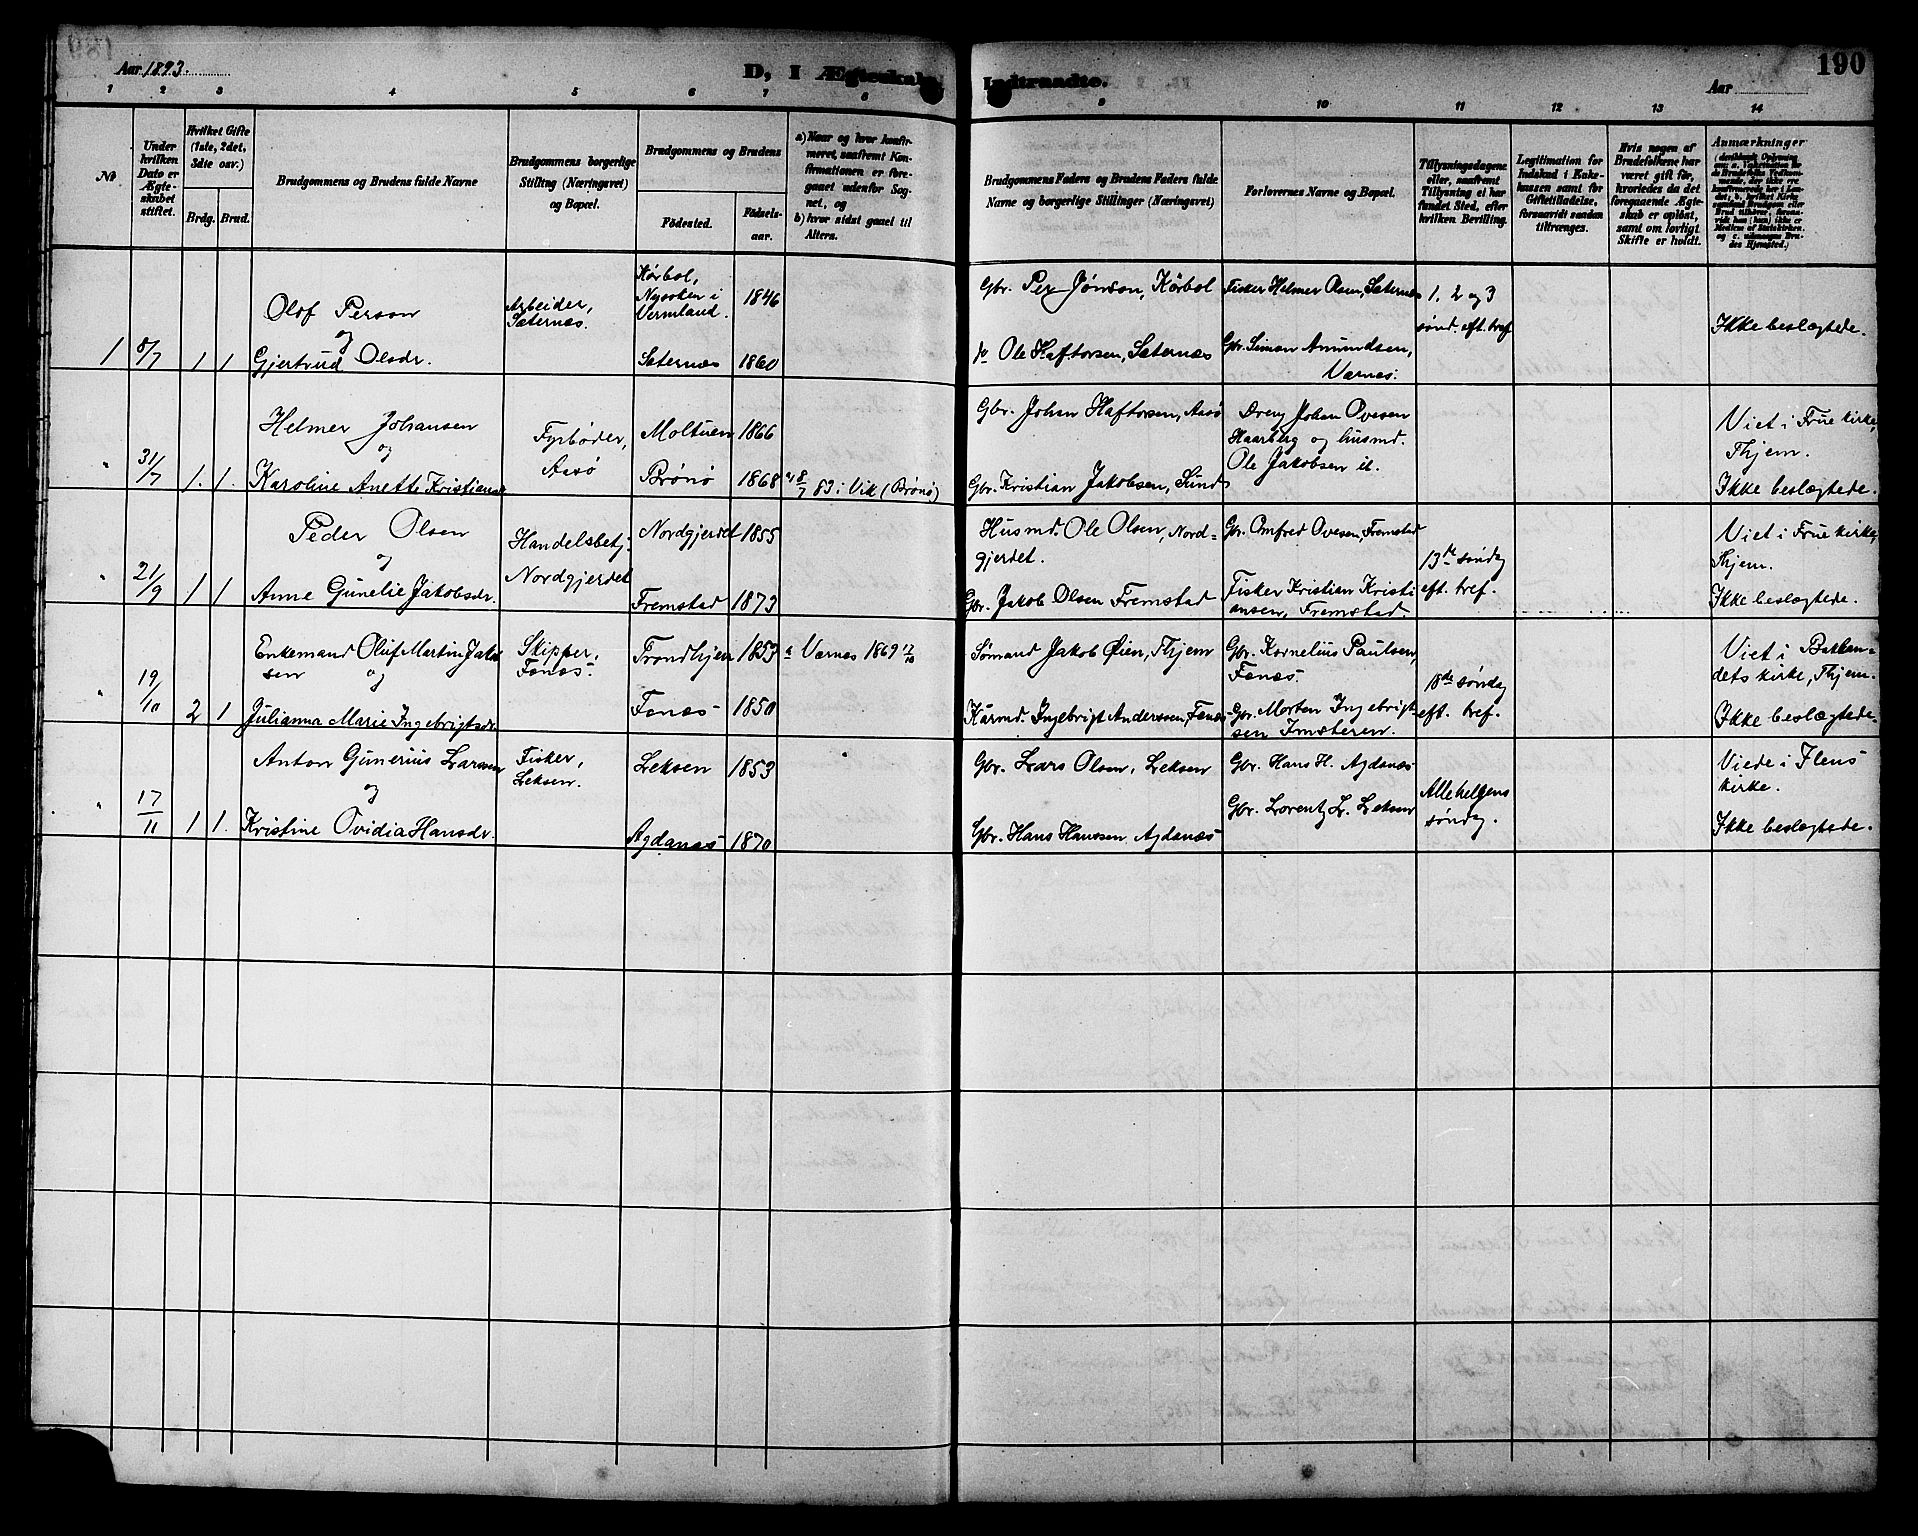 Aar 1893.
D, I Ægteskab
Indtraadte.
Aar
190
1 2 3 4 5 6 7 8 9 10 11 12 13 14
No
Under hvilken Dato er Ægteskabet stiftet.
Hvilket Gifte (1ste, 2det, 3die osv.)
Brdg. Brud.
Brudgommens og Brudens fulde Navne
Brudgommens borgerlige Stilling (Næringsvei) og Bopæl.
Brudgommens og Brudens
Födested.
Födselsaar.
a) Naar og hvor konfirmeret, saafremt Konfirmationen er foregaaet udenfor Sognet, og
b) hvor sidst gaaet til Alters.
Brudgommens Faders og Brudens Faders fulde Navne og borgerlige Stillinger (Næringsvei)
Forlovernes Navne og Bopæl.
Tillysningsdagene eller, saafremt Tillysning ei har fundet Sted, efter hvilken Bevilling.
Legitimation for Indskud i Enkekassen samt for Giftetilladelse, forsaavidt saadan tiltrænges.
Hvis nogen af Brudefolkene har været gift för, hvorledes da det foregaaende Ægteskab er oplöst, samt om lovligt Skifte er holdt.
Anmærkninger
1 8/7 1 1
Olof Person
og
Gjertrud Olsdr.
Arbeider,
Sæternæs.
Kørbol,
Nysoken i
Vermland.
1846
Sæternæs 1860
Gbr. Per Jónson, Körbol
do Ole Haftorsen, Sæternæs
Fisker Helmer Olsen, Sæternæs
Gbr. Simon Amundsen,
Værnes.
1. 2 og 3
sönd. eft. tref
Ikke beslægtede.
" 31/7 1. 1.
Helmer Johansen
og
Karoline Anette Kristians
Fyrbøder,
Assø
Moltuen 1866
Brönö 1868
a) 8/7 83 i Vik (Brönö)
Gbr. Johan Haftorsen, Assø
Gbr. Kristian Jakobsen, Sund
Dreng Johan Ovesen
Haarberg og husmd.
Ole Jakobsen
Viet i Frue kirke,
Thjem.
Ikke beslægtede.
" 21/9 1 1
Peder Olsen
og
Anne Gunelie Jakobsdr.
Handelsbetj.
Nordgjerdet
Nordgjerdet 1855
Fremstad 1873
Husmd. Ole Olsen, Nord-
gjerdet.
Gbr. Jakob Olsen Fremstad
Gbr. Omfred Ovesen, Fremstad
Fisker Kristian Kristi
ansen, Fremstad.
13de söndag
eft. tref.
Viet i Frue kirke,
Thjem.
Ikke beslægtede.
" 19/10 2 1
Enkemand Oluf Martin Jakob
sen og
Julianna Marie Ingebrigtsdr.
Skipper,
Fonæs.
Trondhjem 1853
Fonæs 1850
a Værnes 1869 17/10
Sømand Jakob Øien, Thjem
Kårmd. Ingebrigt Anderssen, Fonæs
Gbr. Kornelius Paulsen,
Fonæs.
Gbr. Morten Ingebrigt-
sen Imsteren.
18de söndag
eft. tref.
Viet i Bakkan-
dets kirke, Thjem.
Ikke beslægtede.
" 17/11 1 1.
Anton Gunerius Larssen
og
Kristine Ovidia Hansdr.
Fisker,
Leksen.
Leksen 1853
Agdanæs 1870
Gbr. Lars Olsen, Leksen
Gbr. Hans Hanssen Agdanæs
Gbr. Hans H. Agdanæs
Gbr. Lorentz L. Leksen
Allehelgens
söndag.
Viede i Ilens
kirke.
Ikke beslægtede.